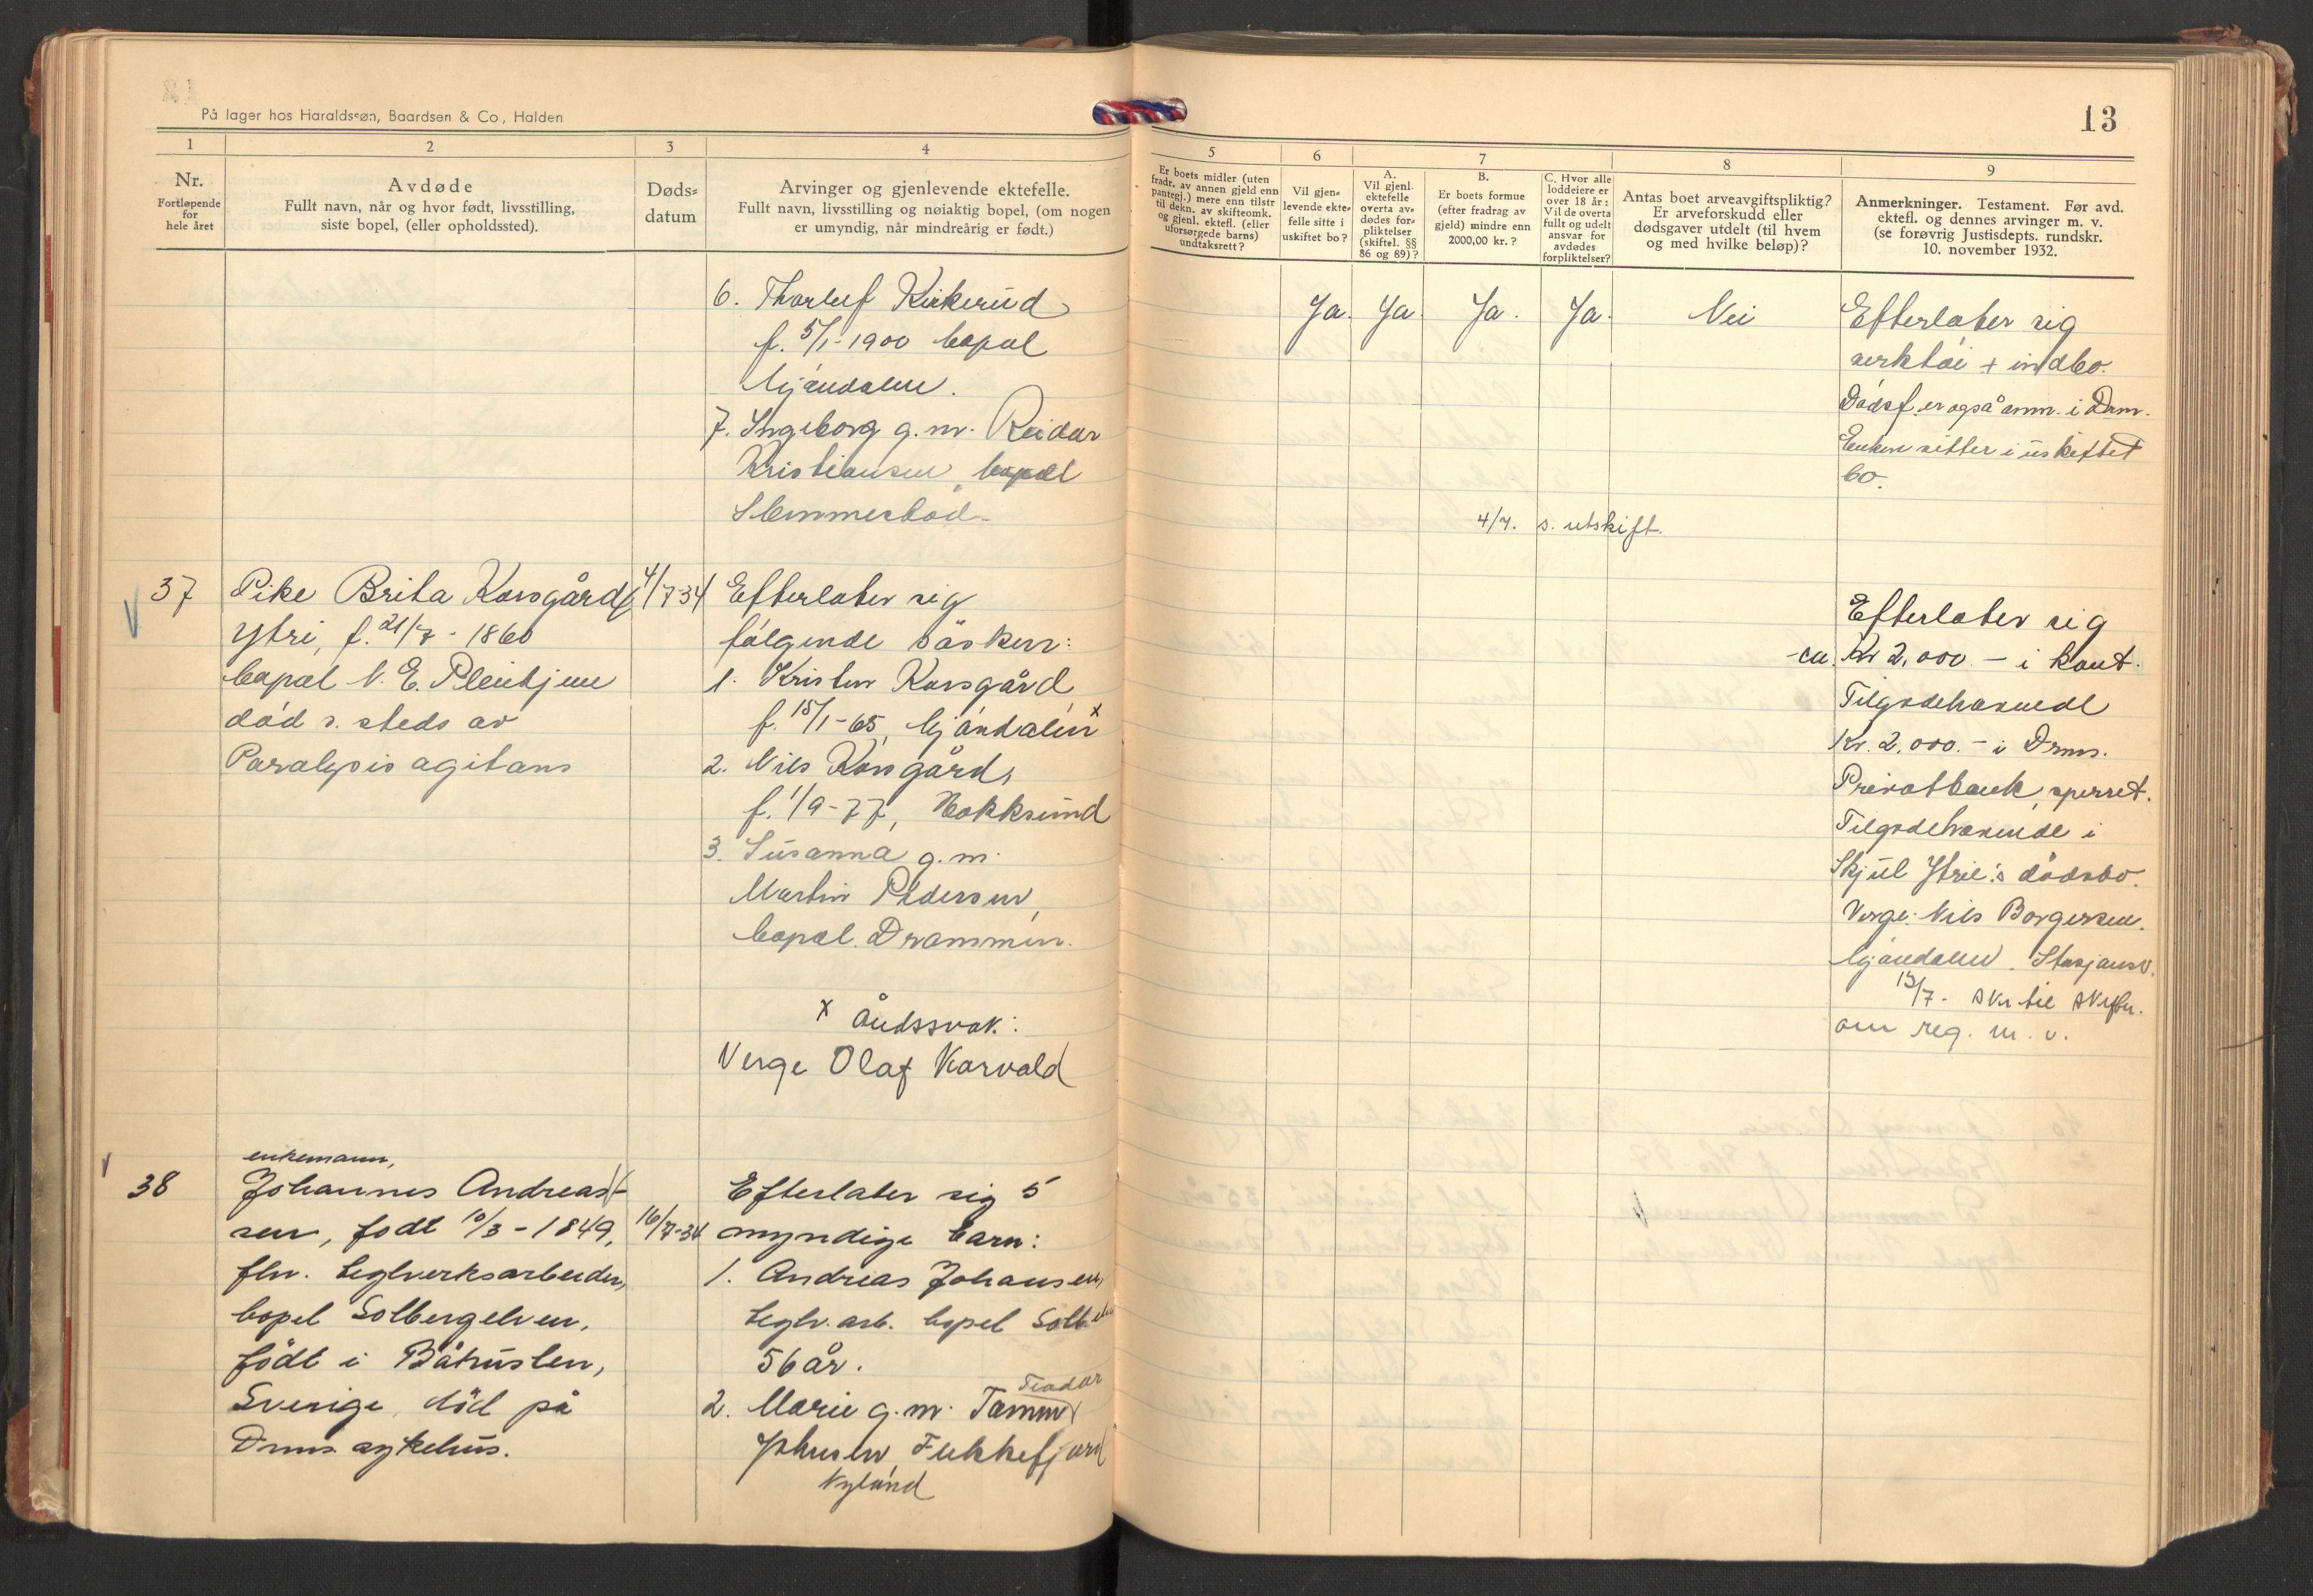 På lager hos Haraldsøn, Baardsen & Co, Halden
1
2
3
4
Nr.
Fortløpende
for
hele året
Avdøde
Fullt navn, når og hvor født, livsstilling,
siste bopel, (eller opholdssted).
Døds-
datum
Arvinger og gjenlevende ektefelle.
Fullt navn, livsstilling og nøiaktig bopel, (om nogen
er umyndig, når mindreårig er født.)
6.
f. 5/1-1900 bopæl
Mjøndalen.
7. Ingeborg g.m. Reidar
Kristiansen, bopæl
Slemmestad
37
Pike Brita Korsgård
Ytri, f. 21/7-1860
bopæl N. E. Pleiehjem
død s. steds av
Paralysis agitans
4/7-34
Efterlater sig
følgende søsken:
1. Kristen Korsgård
f. 15/1-65, Mjøndalen x
2. Nils Korsgård,
f. 1/9-77, Hokksund
3. Susanna g.m.
Martin Pedersen,
bopæl. Drammen.
x åndssvak:
Verge Olaf Korvald
38
enkemann,
Johannes Andreas-
sen, født 10/3-1849,
fhv. teglverksarbeider,
bopel Solbergelven,
født i Båhuslen,
Sverige, død på
Drms sykehus.
16/7-34
Efterlater sig 5
myndige barn:
1. Andreas Johansen,
teglv.arb. bopel Solb.elv
56 år.
Teodor
2. Marie g.m.
Johnsen,
13
5
6
7
8
9
Er boets midler (uten
fradr. av annen gjeld enn
pantegj.) mere enn tilstr
til dekn. av skifteomk.
og gjenl. ektefl. (eller
uforsørgede barns)
undtaksrett?
Vil gjen-
levende ekte-
felle sitte i
uskiftet bo?
A.
Vil gjenl.
ektefelle
overta av-
dødes for-
pliktelser
(skiftel. §§
86 og 89)?
B.
Er boets formue
(efter fradrag av
gjeld) mindre enn
2000,00 kr.?
C. Hvor alle
loddeiere er
over 18 år:
Vil de overta
fullt og udelt
ansvar for
avdødes
forpliktelser?
Antas boet arveavgiftspliktig?
Er arveforskudd eller
dødsgaver utdelt (til hvem
og med hvilke beløp)?
Anmerkninger. Testament. Før avd.
ektefl. og dennes arvinger m. v.
(se forøvrig Justisdepts. rundskr.
10. november 1932.
Ja. Ja Ja. Ja. Nei
Efterlater sig
verktøi + indbo.
Dødsf. er også anm. i Drm.
Enken sitter i uskiftet
bo.
4/7. s. utskift.
Efterlater sig
ca. Kr 2,000 - i kont.
Tilgodehavende
Kr. 2,000.- i Drms.
Privatbank, sperret.
Tilgodehavende i
Skjul Ytrie's dødsbo.
Verge: Nils Borgersen.
Mjøndalen. Stasjonsv.
13/7-
om reg. m. v.